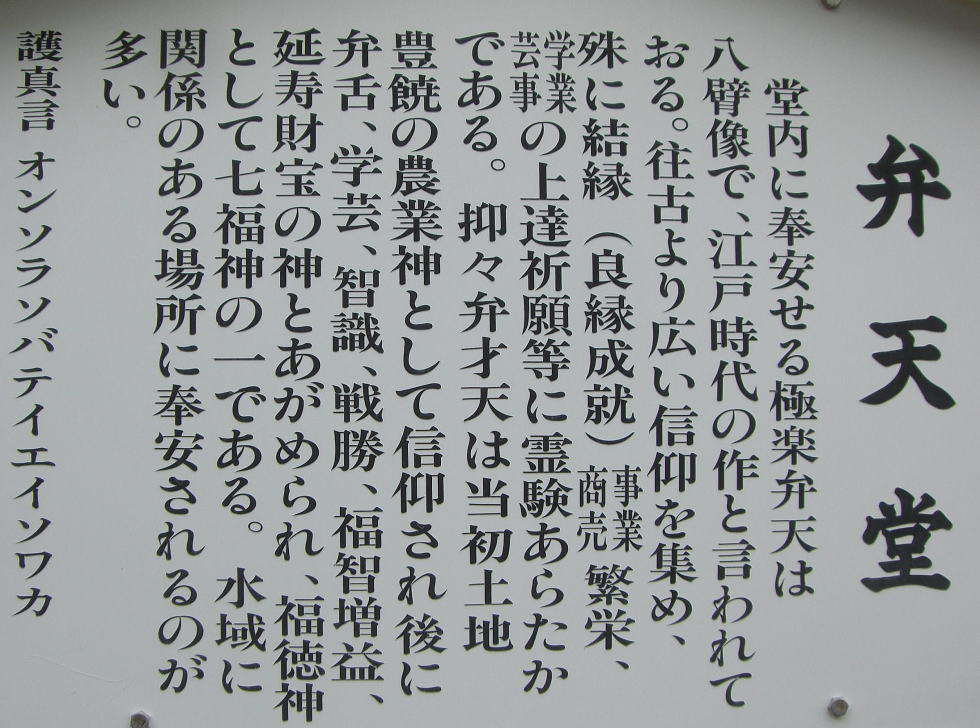 弁天堂
堂内に奉安せる極楽弁天は
八臂像で、江戸時代の作と言われて
おる。往古より広い信仰を集め、
殊に結縁（良縁成就）事業商売繁栄、
学業芸事の上達祈願等に霊験あらたか
である。抑々弁才天は当初土地
豊饒の農業神として信仰され後に
弁舌、学芸、智識、戦勝、福智増益、
延寿財宝の神とあがめられ、福徳神
として七福神の一である。水域に
関係のある場所に奉安されるのが
多い。
護真言 オンソラソバテイエイソワカ